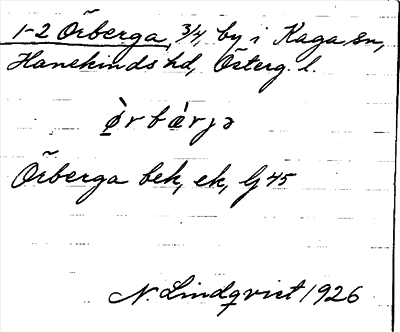 1-2 Örberga, 3/4, by i Kaga sn,
Hanekinds hd, Österg. l.
ø̀rbǽrjə
Örberga bek, ek, Gj 45
N. Lindqvist 1926